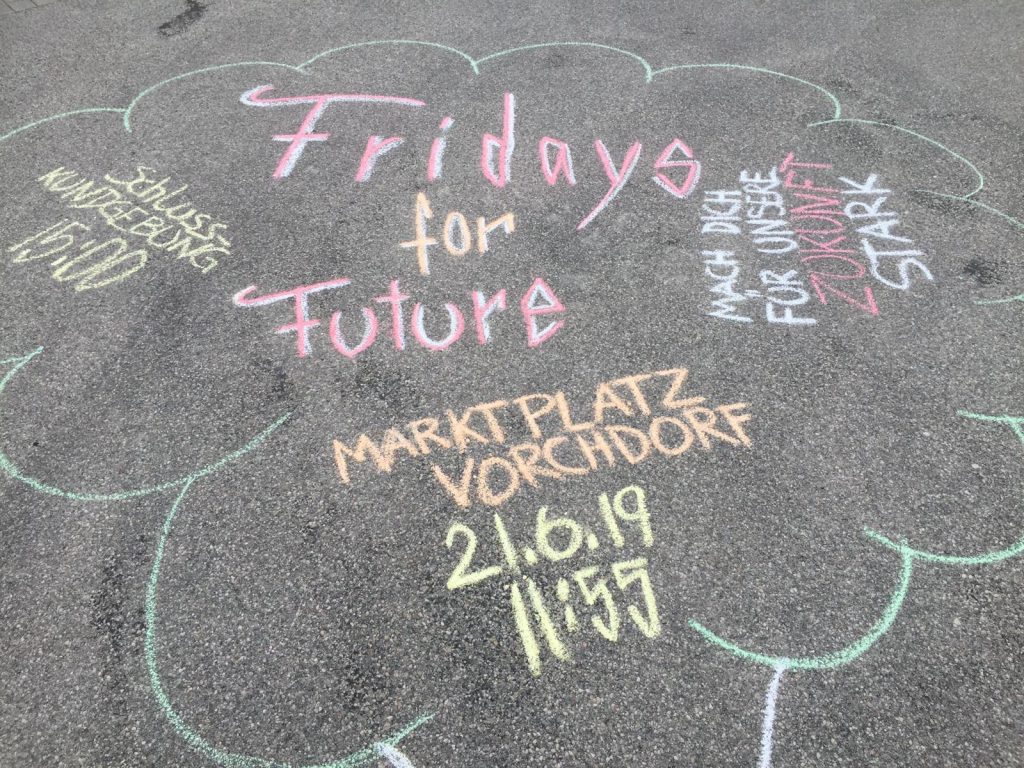 Fridays
for
Future
Schluss-
KUNDGEBUNG
15:00
MACH DICH
FÜR UNSERE
ZUKUNFT
STARK
MARKTPLATZ
VORCHDORF
21.6.19
11:55